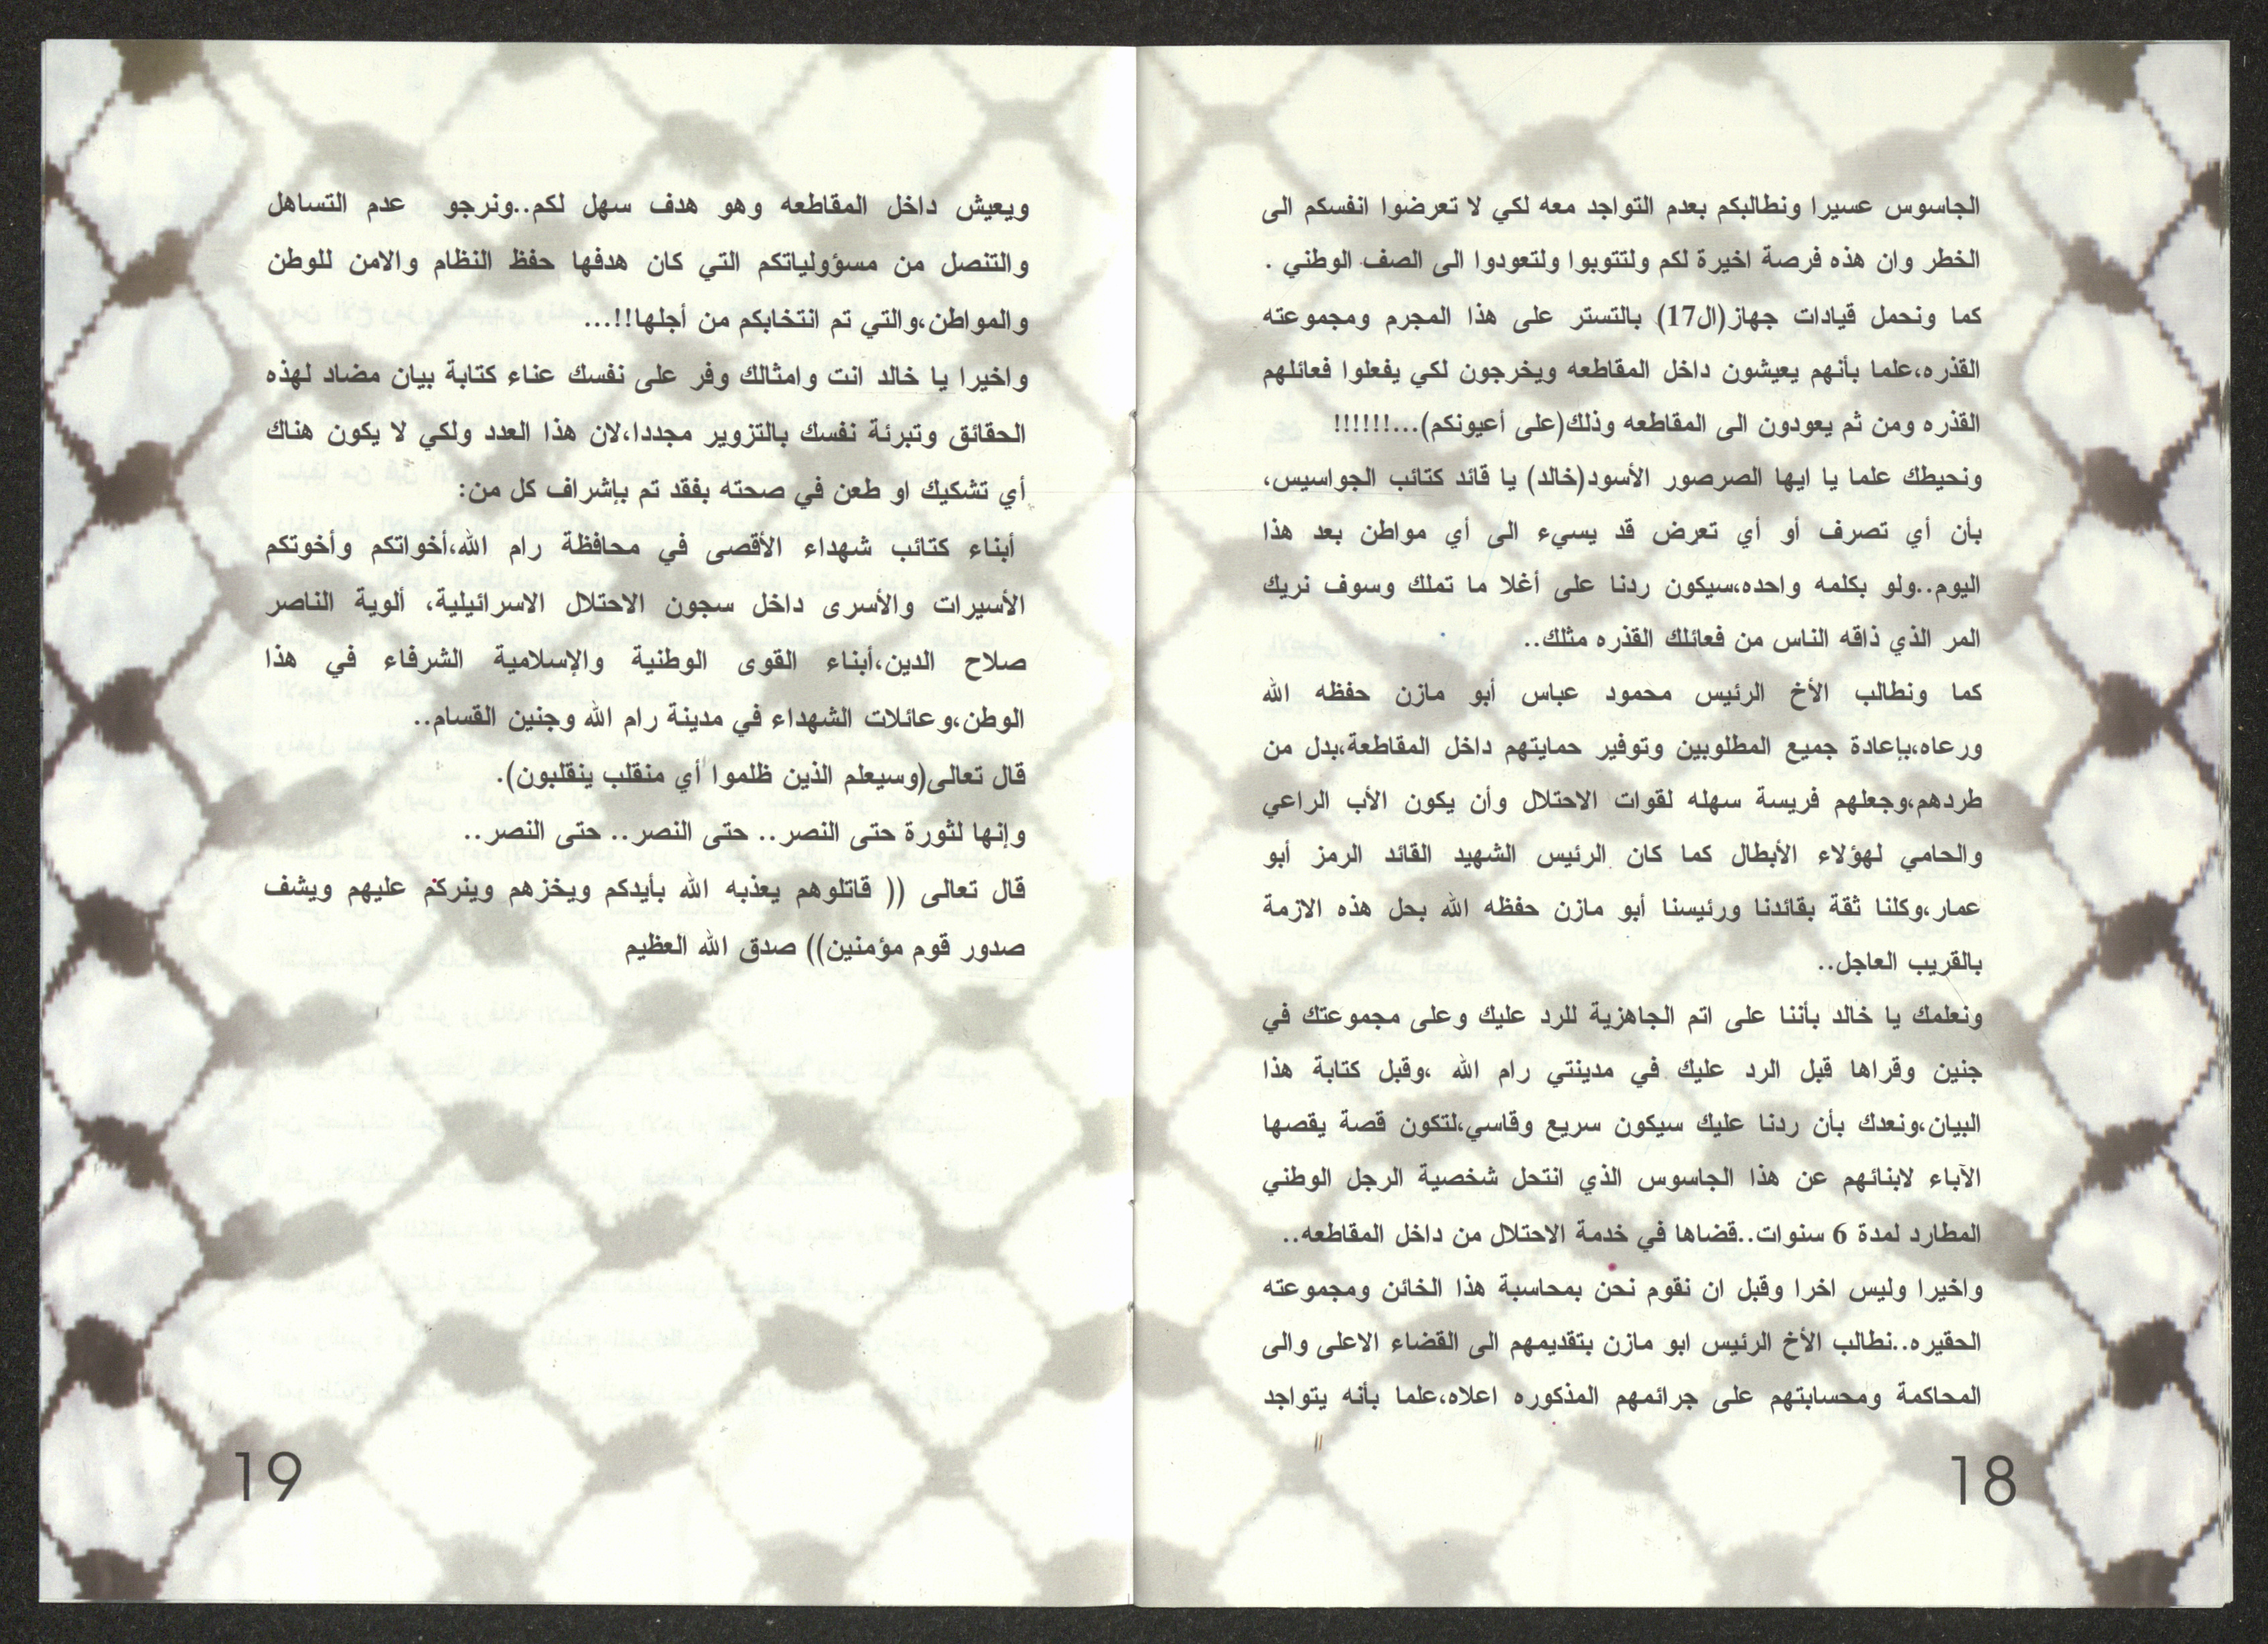 الجاسوس عسيرا ونطالبكم بعدم التواجد معه لكي لا تعرضوا انفسكم الى
الخطر وان هذه فرصة اخيرة لكم ولتتوبوا ولتعودوا الى الصف الوطني .
كما ونحمل قيادات جهاز(ال17) بالتستر على هذا المجرم ومجموعته
القذره،علما بأنهم يعيشون داخل المقاطعه ويخرجون لكي يفعلوا فعائلهم
القذره ومن ثم يعودون الى المقاطعه وذلك(على أعيونكم)...!!!!!!!
ونحيطك علما يا ايها الصرصور الأسود(خالد) يا قائد كتائب الجواسيس،
بأن أي تصرف أو أي تعرض قد يسيء الى أي مواطن بعد هذا
اليوم..ولو بكلمه واحده،سيكون ردنا على أغلا ما تملك وسوف نريك
المر الذي ذاقه الناس من فعائلك القذره مثلك..
كما ونطالب الأخ الرئيس محمود عباس أبو مازن حفظه الله
ورعاه،بإعادة جميع المطلوبين وتوفير حمايتهم داخل المقاطعة،بدل من
طردهم،وجعلهم فريسة سهله لقوات الاحتلال وأن يكون الأب الراعي
والحامي لهؤلاء الأبطال كما كان الرئيس الشهيد القائد الرمز أبو
عمار،وكلنا ثقة بقائدنا ورئيسنا أبو مازن حفظه الله بحل هذه الازمة
بالقريب العاجل..
ونعلمك يا خالد بأننا على اتم الجاهزية للرد عليك وعلى مجموعتك في
جنين وقراها قبل الرد عليك في مدينتي رام الله ،وقبل كتابة هذا
البيان،ونعدك بأن ردنا عليك سيكون سريع وقاسي،لتكون قصة يقصها
الآباء لابنائهم عن هذا الجاسوس الذي انتحل شخصية الرجل الوطني
المطارد لمدة 6 سنوات..قضاها في خدمة الاحتلال من داخل المقاطعه..
واخيرا وليس اخرا وقبل ان نقوم نحن بمحاسبة هذا الخائن ومجموعته
الحقيره..نطالب الأخ الرئيس ابو مازن بتقديمهم الى القضاء الاعلى والى
المحاكمة ومحسابتهم على جرائمهم المذكوره اعلاه،علما بأنه يتواجد
18
ويعيش داخل المقاطعه وهو هدف سهل لكم..ونرجو عدم التساهل
والتنصل من مسؤولياتكم التي كان هدفها حفظ النظام والامن للوطن
والمواطن،والتي تم انتخابكم من أجلها!!...
واخيرا يا خالد انت وامثالك وفر على نفسك عناء كتابة بيان مضاد لهذه
الحقائق وتبرئة نفسك بالتزوير مجددا،لان هذا العدد ولكي لا يكون هناك
أي تشكيك او طعن في صحته بفقد تم بإشراف كل من:
أبناء كتائب شهداء الأقصى في محافظة رام الله،أخواتكم وأخوتكم
الأسيرات والأسرى داخل سجون الاحتلال الاسرائيلية، ألوية الناصر
صلاح الدين،أبناء القوى الوطنية والإسلامية الشرفاء في هذا
الوطن،وعائلات الشهداء في مدينة رام الله وجنين القسام..
قال تعالى(وسيعلم الذين ظلموا أي منقلب ينقلبون).
وإنها لثورة حتى النصر.. حتى النصر.. حتى النصر..
قال تعالى (( قاتلوهم يعذبه الله بأيدكم ويخزهم وينركم عليهم ويشف
صدور قوم مؤمنين)) صدق الله العظيم
19